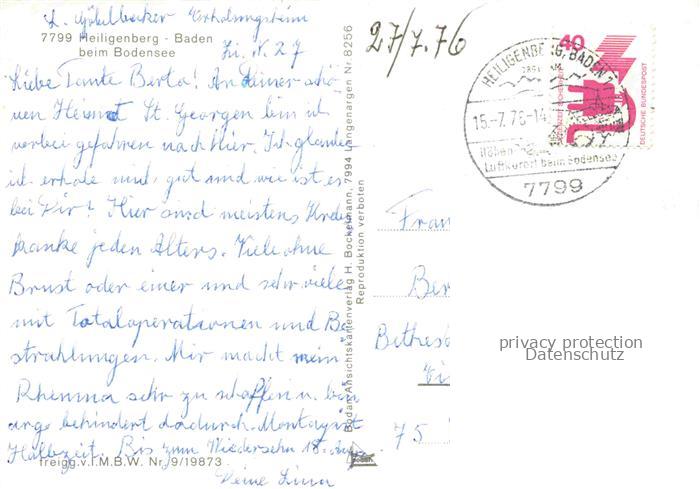 L. Göbelbecker Erholungsheim
7799 Heiligenberg - Baden
beim Bodensee
Zi. N. 27
Liebe Tante Berta! An Deiner schö-
nen Heimat St. Georgen bin ich
vorbei gefahren nach hier. Ich glaube
ich erhole mich gut und wie ist es
bei Dir? Hier sind meistens Krebs
kranke jeden Alters. Viele ohne
Brust oder einer und sehr viele
mit Totaloperationen und Be
strahlungen. Mir macht mein
Rheuma sehr zu schaffen u. bin
arg behindert dadurch. Montag ist
Halbzeit. Bis zum Wiedersehn 18. Aug.
freigg.v.I.M.B.W. Nr. 9/19873
Deine Lina
Bodan-Ansichtskartenverlag H. Bockelmann, 7994 Langenargen Nr 8256
Reproduktion verboten
27/7.76
HEILIGENBERG, BADEN
15.-7.76-14
Höhen-
Luftkurort beim Bodensee
7799
40
DEUTSCHE BUNDESPOST
Frau
Ber
Bethes
75
privacy protection
Datenschutz